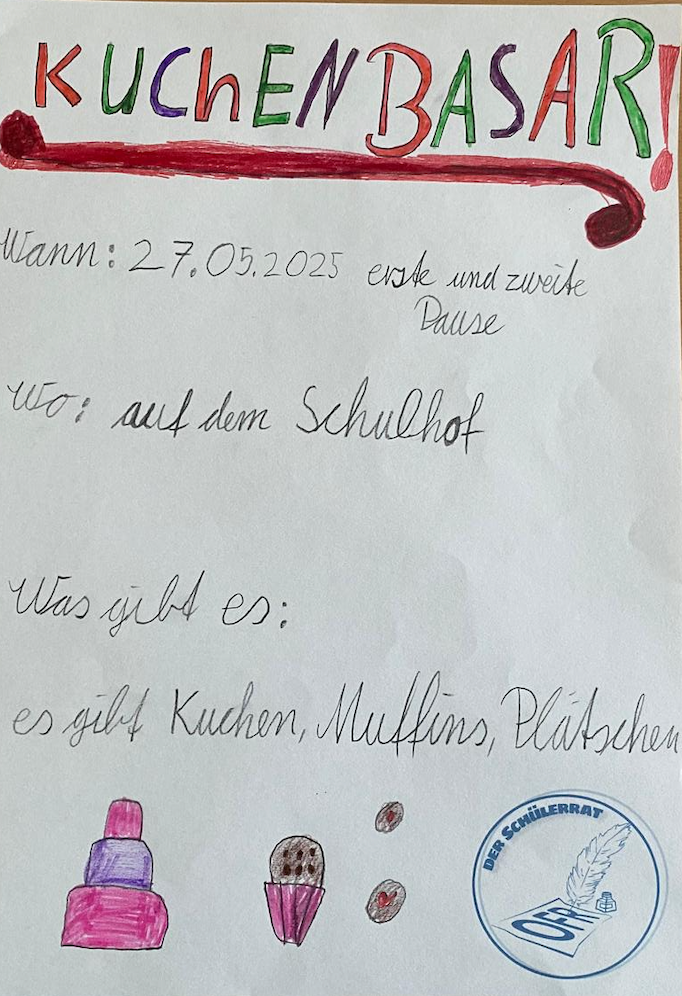 KUChENBASAR!
Wann: 27.05.2025 erste und zweite
Pause
Wo: auf dem Schulhof
Was gibt es:
es gibt Kuchen, Muffins, Plätschen
DER SCHÜLERRAT
OFR